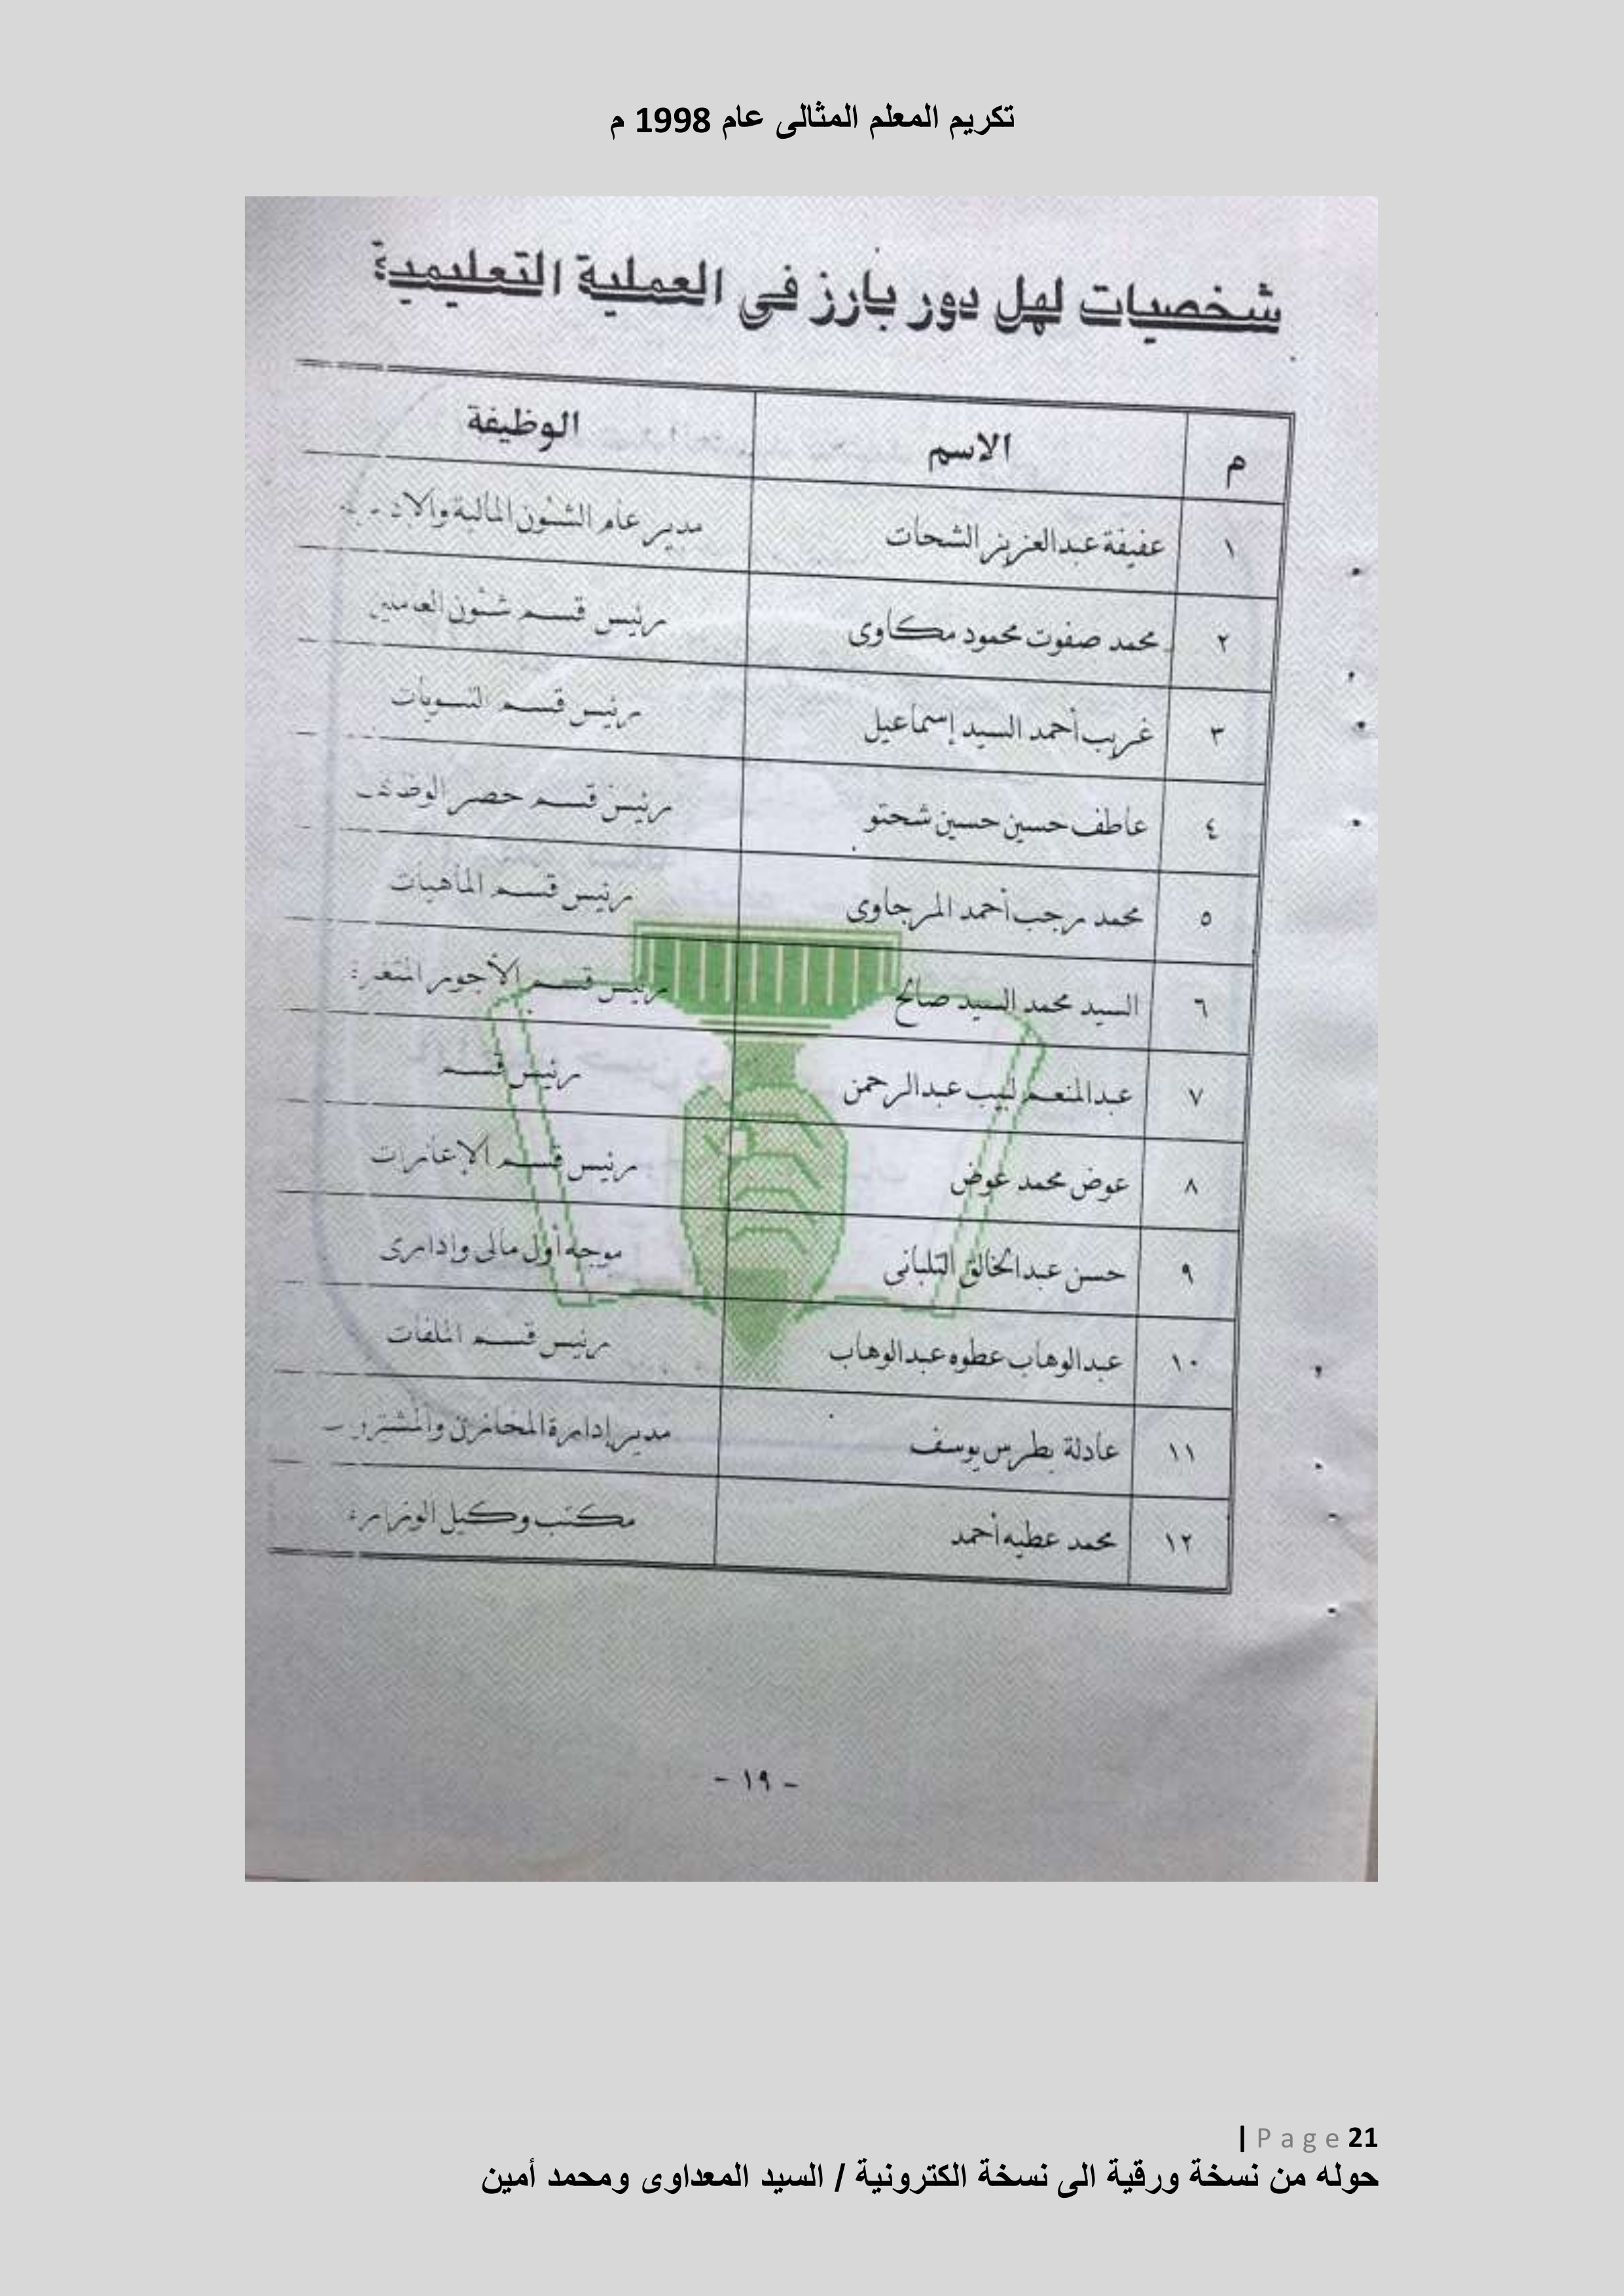 تكريم المعلم المثالى عام 1998 م
شخصيات لهل دور بارز فى العملية التعليمية
م الاسم الوظيفة
١ عفيفة عبدالعزيز الشحات مدير عام الشئون المالية
٢ محمد صفوت محمود مكاوى رئيس قسم شئون العاملين
٣ غريب أحمد السيد إسماعيل رئيس قسم التسويات
٤ عاطف حسين حسين شحتو رئيس قسم حصر الوظائف
٥ محمد رجب أحمد المرجاوى رئيس قسم الماهيات
٦ السيد محمد السيد صالح رئيس قسم الأجور المتغيرة
٧ عبدالمنعم لبيب عبدالرحمن رئيس قسم
٨ عوض محمد عوض رئيس قسم الإعارات
٩ حسن عبدالخالق التلبانى موجه أول مالى وإدارى
١٠ عبدالوهاب عطوه عبدالوهاب رئيس قسم الملفات
١١ عادلة بطرس يوسف مدير إدارة المخازن والمشتريات
١٢ محمد عطيه أحمد مكتب وكيل الوزارة
- ١٩ -
21 Page |
حوله من نسخة ورقية الى نسخة الكترونية / السيد المعداوى ومحمد أمين